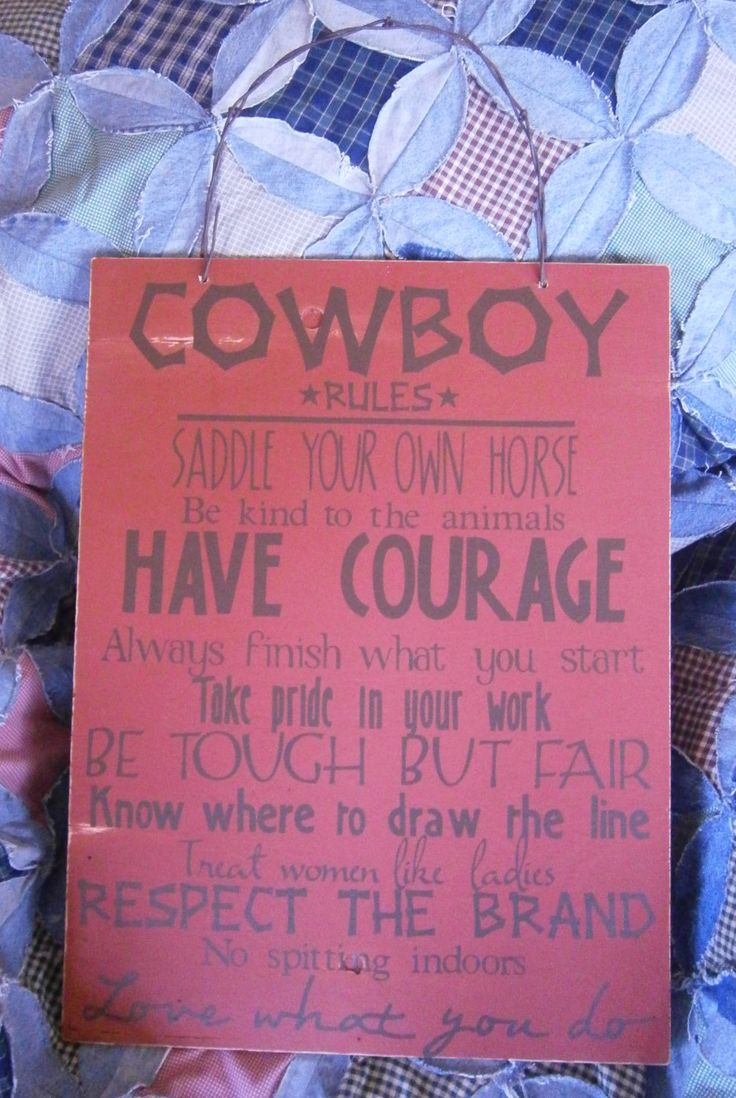 COWBOY
★RULES★
SADDLE YOUR OWN HORSE
Be kind to the animals
HAVE COURAGE
Always finish what you start
Take pride in your work
BE TOUGH BUT FAIR
Know where to draw the line
Treat women like ladies
RESPECT THE BRAND
No spitting indoors
Love what you do